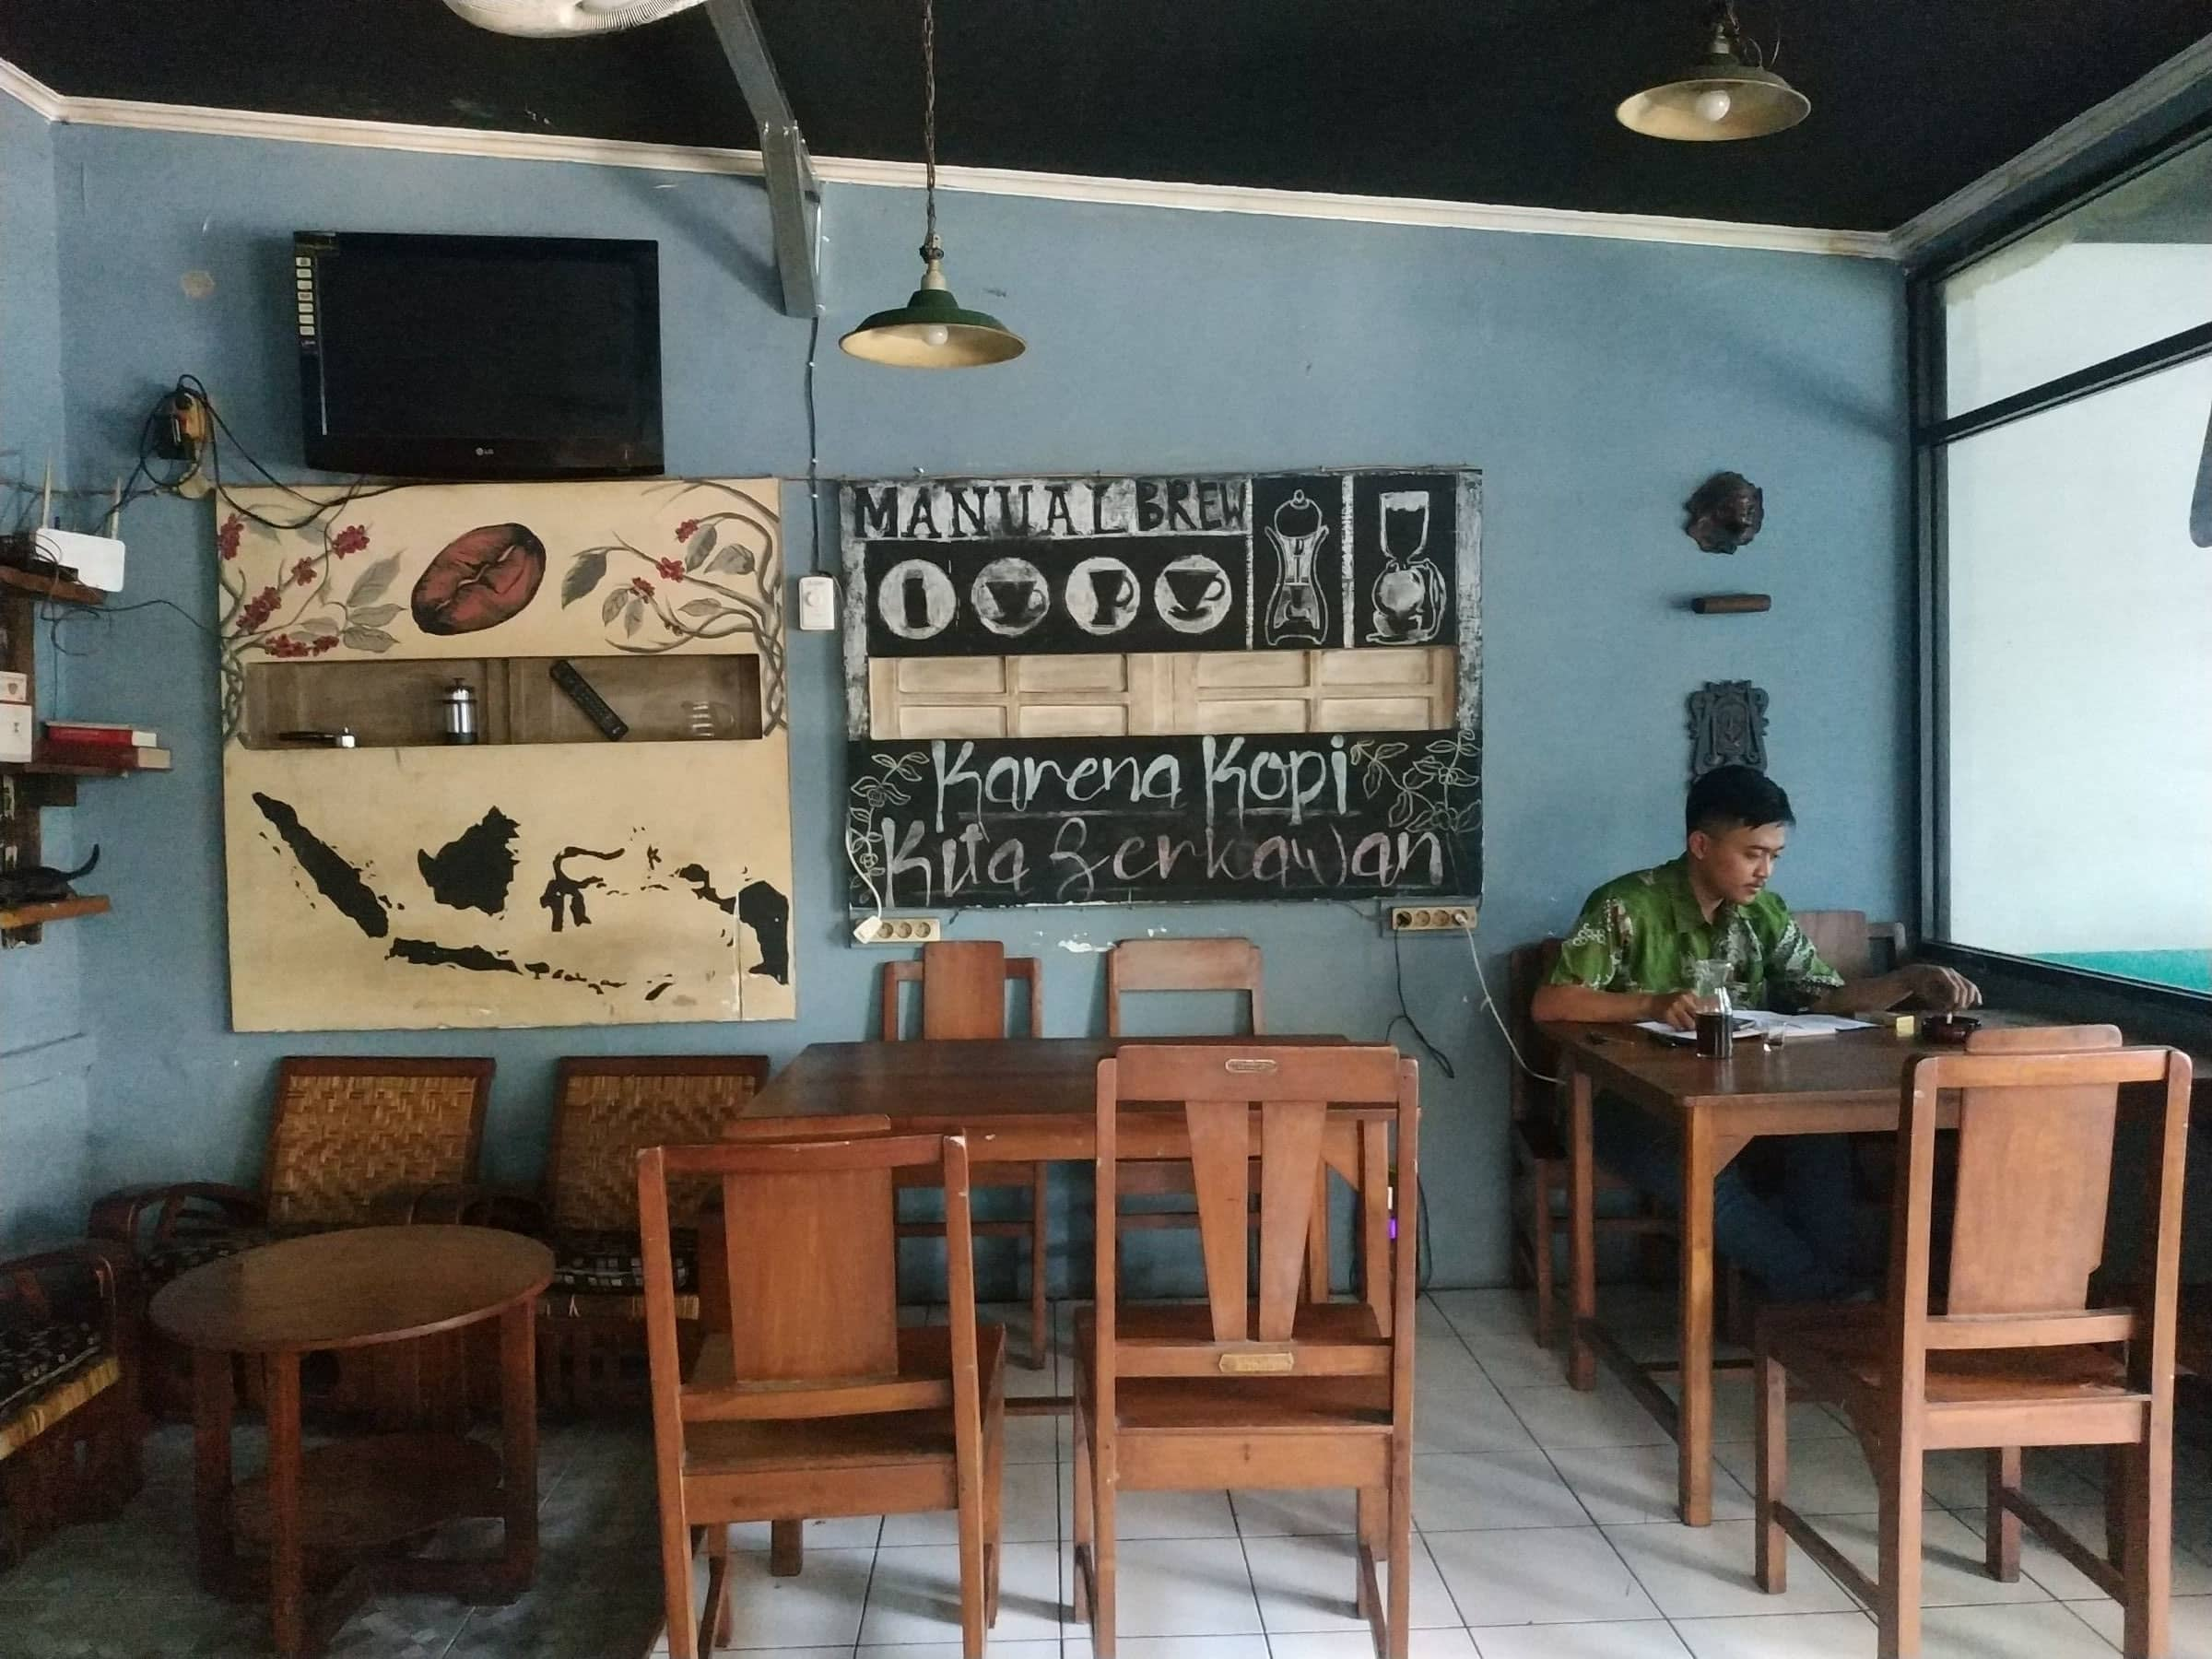 LG
MANUAL BREW
Karena Kopi
Kita Berkawan